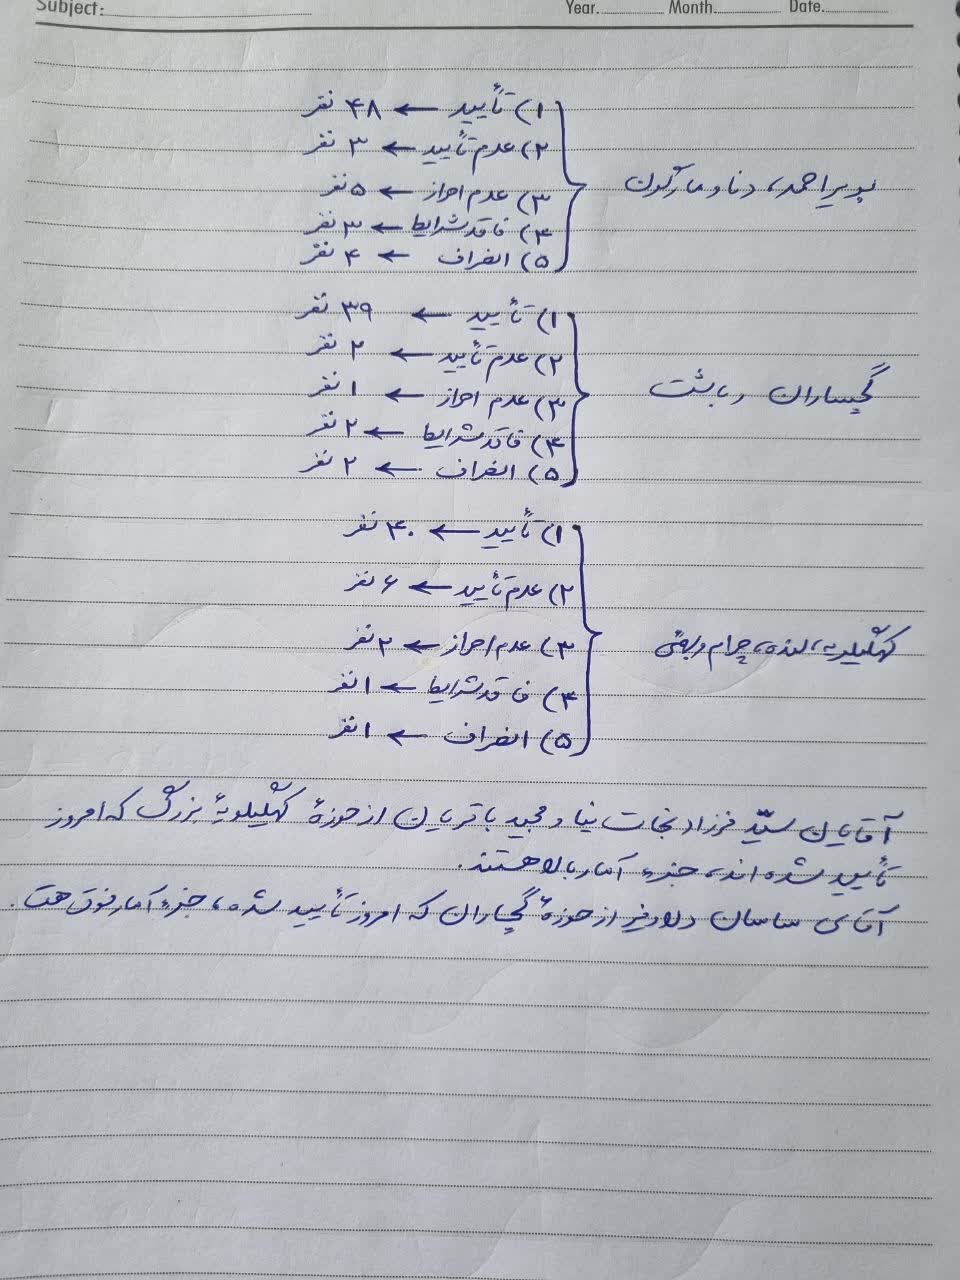 Subject: Year. Month. Date.
۱) تأیید ← ۴۸ نفر
۲) عدم تأیید ← ۳ نفر
بویراحمد، دنا و مارگون
۳) عدم احراز ← ۵ نفر
۴) فاقد شرایط ← ۳ نفر
۵) انصراف ← ۴ نفر
۱) تأیید ← ۳۹ نفر
۲) عدم تأیید ← ۲ نفر
گچساران و باشت
۳) عدم احراز ← ۱ نفر
۴) فاقد شرایط ← ۲ نفر
۵) انصراف ← ۲ نفر
۱) تأیید ← ۴۰ نفر
۲) عدم تأیید ← ۶ نفر
کهگیلویه، لنده، چرام و بهمئی
۳) عدم احراز ← ۲ نفر
۴) فاقد شرایط ← ۱ نفر
۵) انصراف ← ۱ نفر
آقایان سیّد فرزاد نجات نیا و مجید باقریان از حوزهٔ کهگیلویهٔ بزرگ که امروز
تأیید شده اند، جزء آمار بالا هستند.
آقای ساسان دلاویز از حوزهٔ گچساران که امروز تأیید شده، جزء آمار فوق هست.